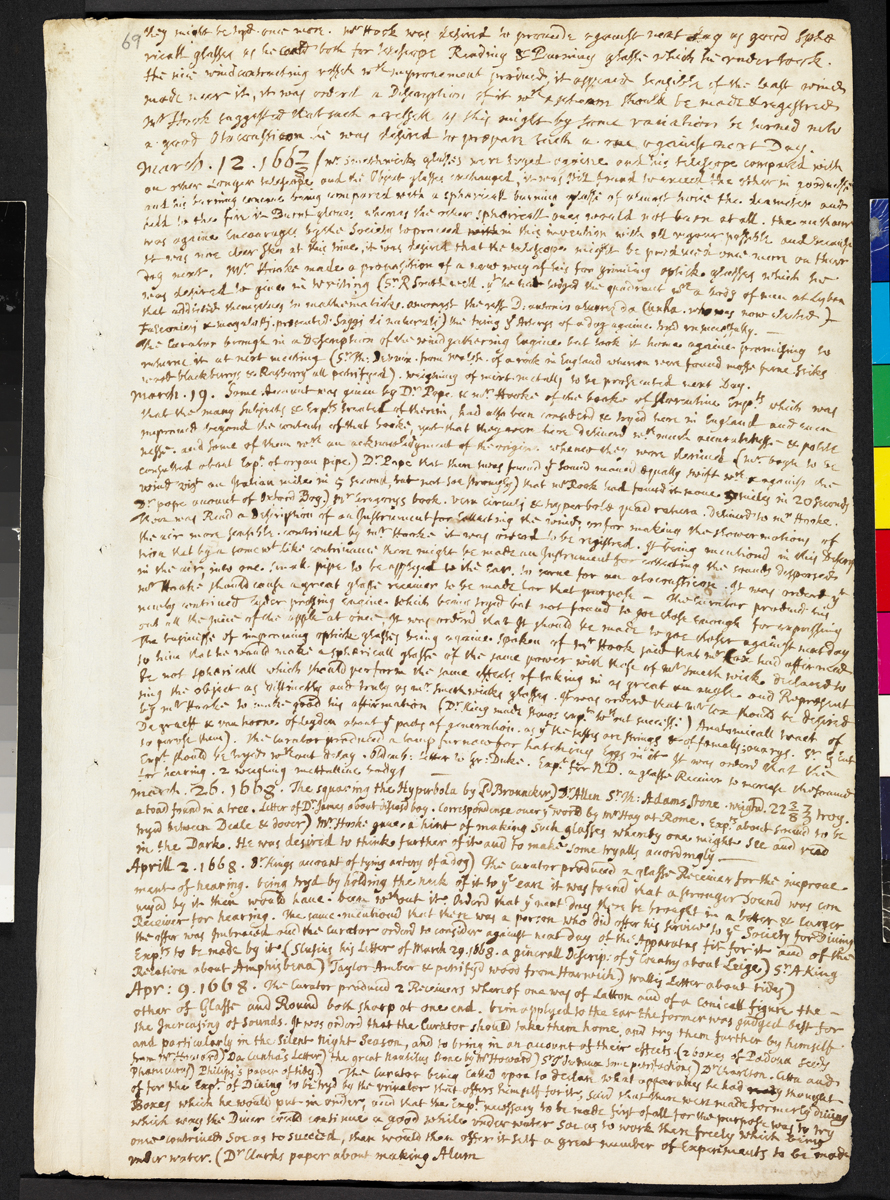 69
they might be tryd once more. mr Hook was desired to provide against next day as good sphe
ricall glasses as he could both for telescope Reading & Burning glasse which he undertook.
the nice wind contracting vessell wth improvement produced, it appeard sensible of the least wind
made neer it, it was orderd a Description of it wth a scheam should be made & registred
mr Hook suggested that such a vessell as this might by some variation be turned into
a good Otocousticon he was desired to prepare such a one against next Day.
March. 12. 1667/8 / mr Smethwicks glasses were tryed againe and his telescope compared with
on other Longer telescope and the Object glasses exchanged, it was still found to exceed the other in goodnesse
and his burning concave being compared with a sphericall burning glasse of almost twice the diameter and
held to the fire it Burnt gloves whereas the other sphericall ones would not burn at all. the author
was againe Encouraged by the Society to proceed in this invention with all vigour possible and because
it was not cleer sky at this time, it was desired that the telescope might be produced once more on thurs
day next. Mr Hooke made a proposition of a new way of his for grinding optick glasses which he
was desired to give in writing (Sr R Southwell. yt he had lodged the quadrant wth a body of men at Lisbon
that addicted themselves to mathematicks. amongst the rest D antonio alvarez da Cunha. who was now elected)
Falconieri & magalotti. presented Saggi di naturali) the tying ye Arterys of a dog againe tryd unsuccessfully.
the Curator brought in a Description of the wind gathering Engine but took it home againe promising to
returne it at next meeting (Sr Th: from of a rock in England wheron were found mosse ferne sticks
wood blackburys & Rasberry all petrifyed). weighing of mixt metalls to be prosecuted next Day.
March. 19. Some Account was given by Dr Pope & mr Hooke of the booke of florentine Expts which was
that the many subjects & Expts treated of therin, had also been considerd & tryed here in England and even
improved beyond the contents of that booke, yet that they were here deliverd wth much accuratenesse & polite
nesse. and some of them wth an acknowledgment of the origine whence they were derived (mr boyle to be
consulted about Expt of organ pipe.) Dr Pope that there twas found yt sound moved equally swift wth & against the
wind viz. an Italian mile in 5 second, but not soe strongly) that mr Rook had found it move 5 miles in 20 seconds
Dr pope account of Oxford Boy.) mr Gregorys book. vera circuli & hyperbolae quadratura. deliverd to mr Hooke.
there was Read a description of an Instrument for Collecting the winds or for making the slower motions of
the aire more sensible. contrived by mr Hooke it was orderd to be registred. It being mentiond in this Descrip
tion that by a somewt like contrivance there might be made an Instrument for collecting the sounds dispersed
in the air; into one small pipe to be applyed to the Ear. to serve for an otocousticon. It was orderd yt
mr Hooke should cause a great glasse receiver to be made for that purpose - The Curator produced his
newly contrived Cyder pressing Engine which being tryed but not found to goe close enough for expressing
out all the juice of the apple at once. It was orderd that it should be made to goe closer against next day
The businisse of improving optick glasses being againe spoken of mr Hook said that mr Cox had affirmed
to him that he would make a sphericall glasse of the same power with those of mr Smethwicke declared to
be not sphericall which should perform the same effects of taking in as great an angle and Represent
ing the object as distinctly and truly as mr Smethwicks glasses. It was orderd that mr Cox should be desired
by mr Hooke to make good his affirmation (Dr King made Expt wthout successe.) Anatomicall tract of
De graeff & van horne of Leyden about ye parts of generation. as yt the testes are strings & of females ovarys.
to peruse them). The Curator produced a lamp furnace for hatching Eggs in it. It was orderd that the
Expt should be tryed wthout delay. Oldenb: Letter to Gr: Duke. Expt for N.D. a glasse Receiver to increase the sound
for hearing. 2 weighing mettalline bodys
march. 26. 1668. The squaring the Hyperbola by Ld Brouncker) Dr Allen Sr Th: Adams stone. weighd. 22 3/8 troy.
a toad found in a tree. Letter of Dr James about diseasd boy. correspondence over ye world by mr Hay at Rome. Expt about sound to be
tryd between Deale & dover) Mr Hooke gave a hint of making such glasses wherby one might see and read
in the Darke. He was desired to think further of it and to make some tryalls accordingly
Aprill 2. 1668. Dr Kings account of tying artery of a dog) The Curator produced a glasse Receiver for the improve
ment of hearing. being tryd by holding the neck of it to ye eare it was found that a stronger sound was con
veyed by it then would have been without it. Orderd that ye next day there be brought in a better & larger
Receiver for hearing. The same mentiond that there was a person who did offer his service to ye Society for Diving
the offer was embraced and the Curator orderd to consider against next day of the Apparatus fit for it and of the
Expts to be made by it (Slusius his Letter of March 29. 1668. a generall Descrip: of ye Country about Leige.) Sr A King
Relation about Amphisbena) Taylor Amber & petrifyd wood from Harwich) wallis Letter about tides)
Apr: 9. 1668. The Curator produced 2 Receivers wherof one was of Lattom and of a Conicall figure the
other of Glasse and Round both sharp at one end. bein applyed to the Ear the former was judged best for
the Increasing of Sounds. It was orderd that the Curator should take them home, and try them further by himself
and particularly in the Silent Night Season, and to bring in an account of their effects. (2 boxes of Padova seeds
from mr Howard) Da Cunha's Letter) the great nautilus stone by mr Howard) some petrifactions) Dr Charlton. Cetta and
Philips's power of tides.) The Curator being called upon to declare what apparatus he had thought
of for the Expt of Diving to be tryd by the that offers himself for it, said that there were made formerly diving
Boxes which he would put in order, and that the Expt necessary to be made first of all for the purpose was to try
which way the Diver could continue a good while under water soe as to work there freely which being
once contrived soe as to succeed, then would then offer it self a great number of Experiments to be made
under water. (Dr Clarks paper about making Alum